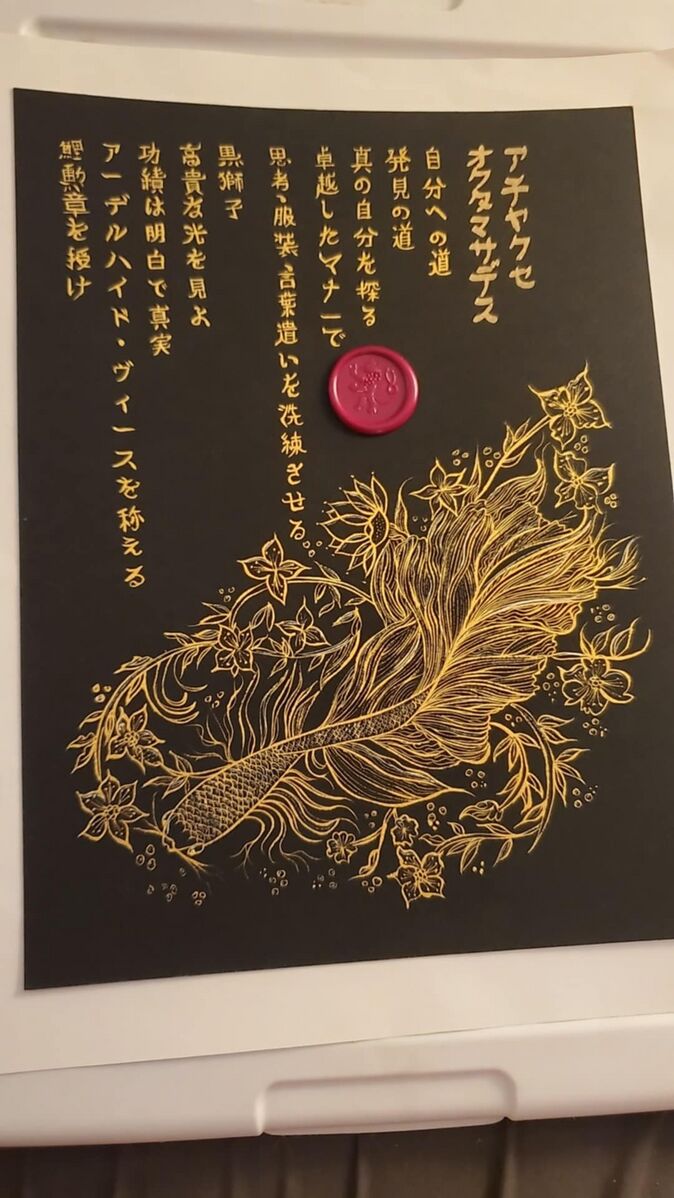 アチヤクセ
オクタマサデス
自分への道
発見の道
真の自分を探る
卓越したマナーで
思考、服装、言葉遣いを洗練させる
黒獅子
高貴な光を見よ
功績は明白で真実
アーデルハイド・ヴィースを称える
鯉勲章を授け